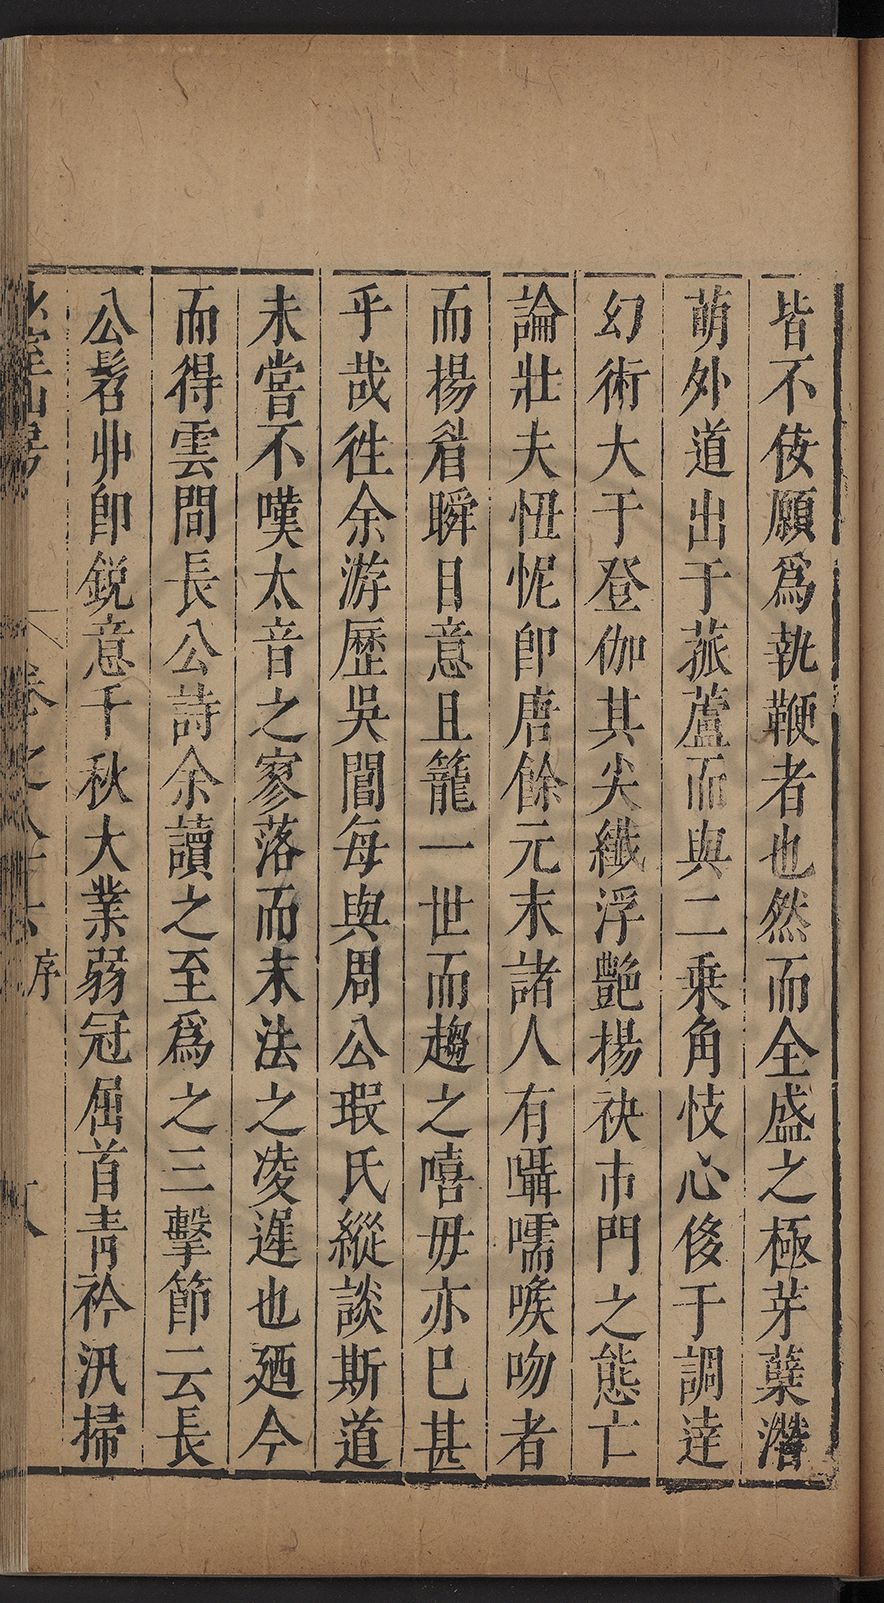 皆不佞願為執鞭者也然而全盛之極芽蘖潛
萌外道出于菰蘆而與二乗角忮心侈于調達
幻術大于登伽其尖纖浮艷揚袂市門之態亡
論壯夫忸怩卽唐餘元末諸人有囁嚅喉吻者
而揚眉瞬目意且籠一世而趨之嘻毋亦巳甚
乎哉徃余游歷吳閶每與周公瑕氏縱談斯道
未嘗不嘆太音之寥落而末法之凌遲也廼今
而得雲間長公詩余讀之至為之三擊節云長
公髫丱卽銳意千秋大業弱冠屈首靑衿汛掃
山房
卷之八十六
序